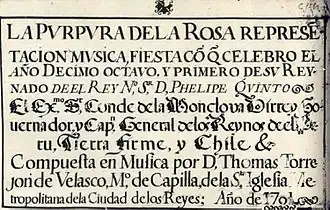 LA PVRPVRA DE LA ROSA REPRESE
TACION MVSICA, FIESTA CŌ Q̄ CELEBRO EL
AÑO DECIMO OCTAVO, Y PRIMERO DE SV REY
NADO DE EL REY Nº. Sº. D. PHELIPE QVINTO
El Exmo. Sr. Conde de la Monclova Virrey Go
vernador, y Capn. General de los Reynos de el Pe
ru, Tierra firme, y Chile &
Compuesta en Musica por D. Thomas Torre
jon de Velasco, Mo. de Capilla, de la Sta. Iglesia Me
tropolitana de la Ciudad de los Reyes; Año de 1701